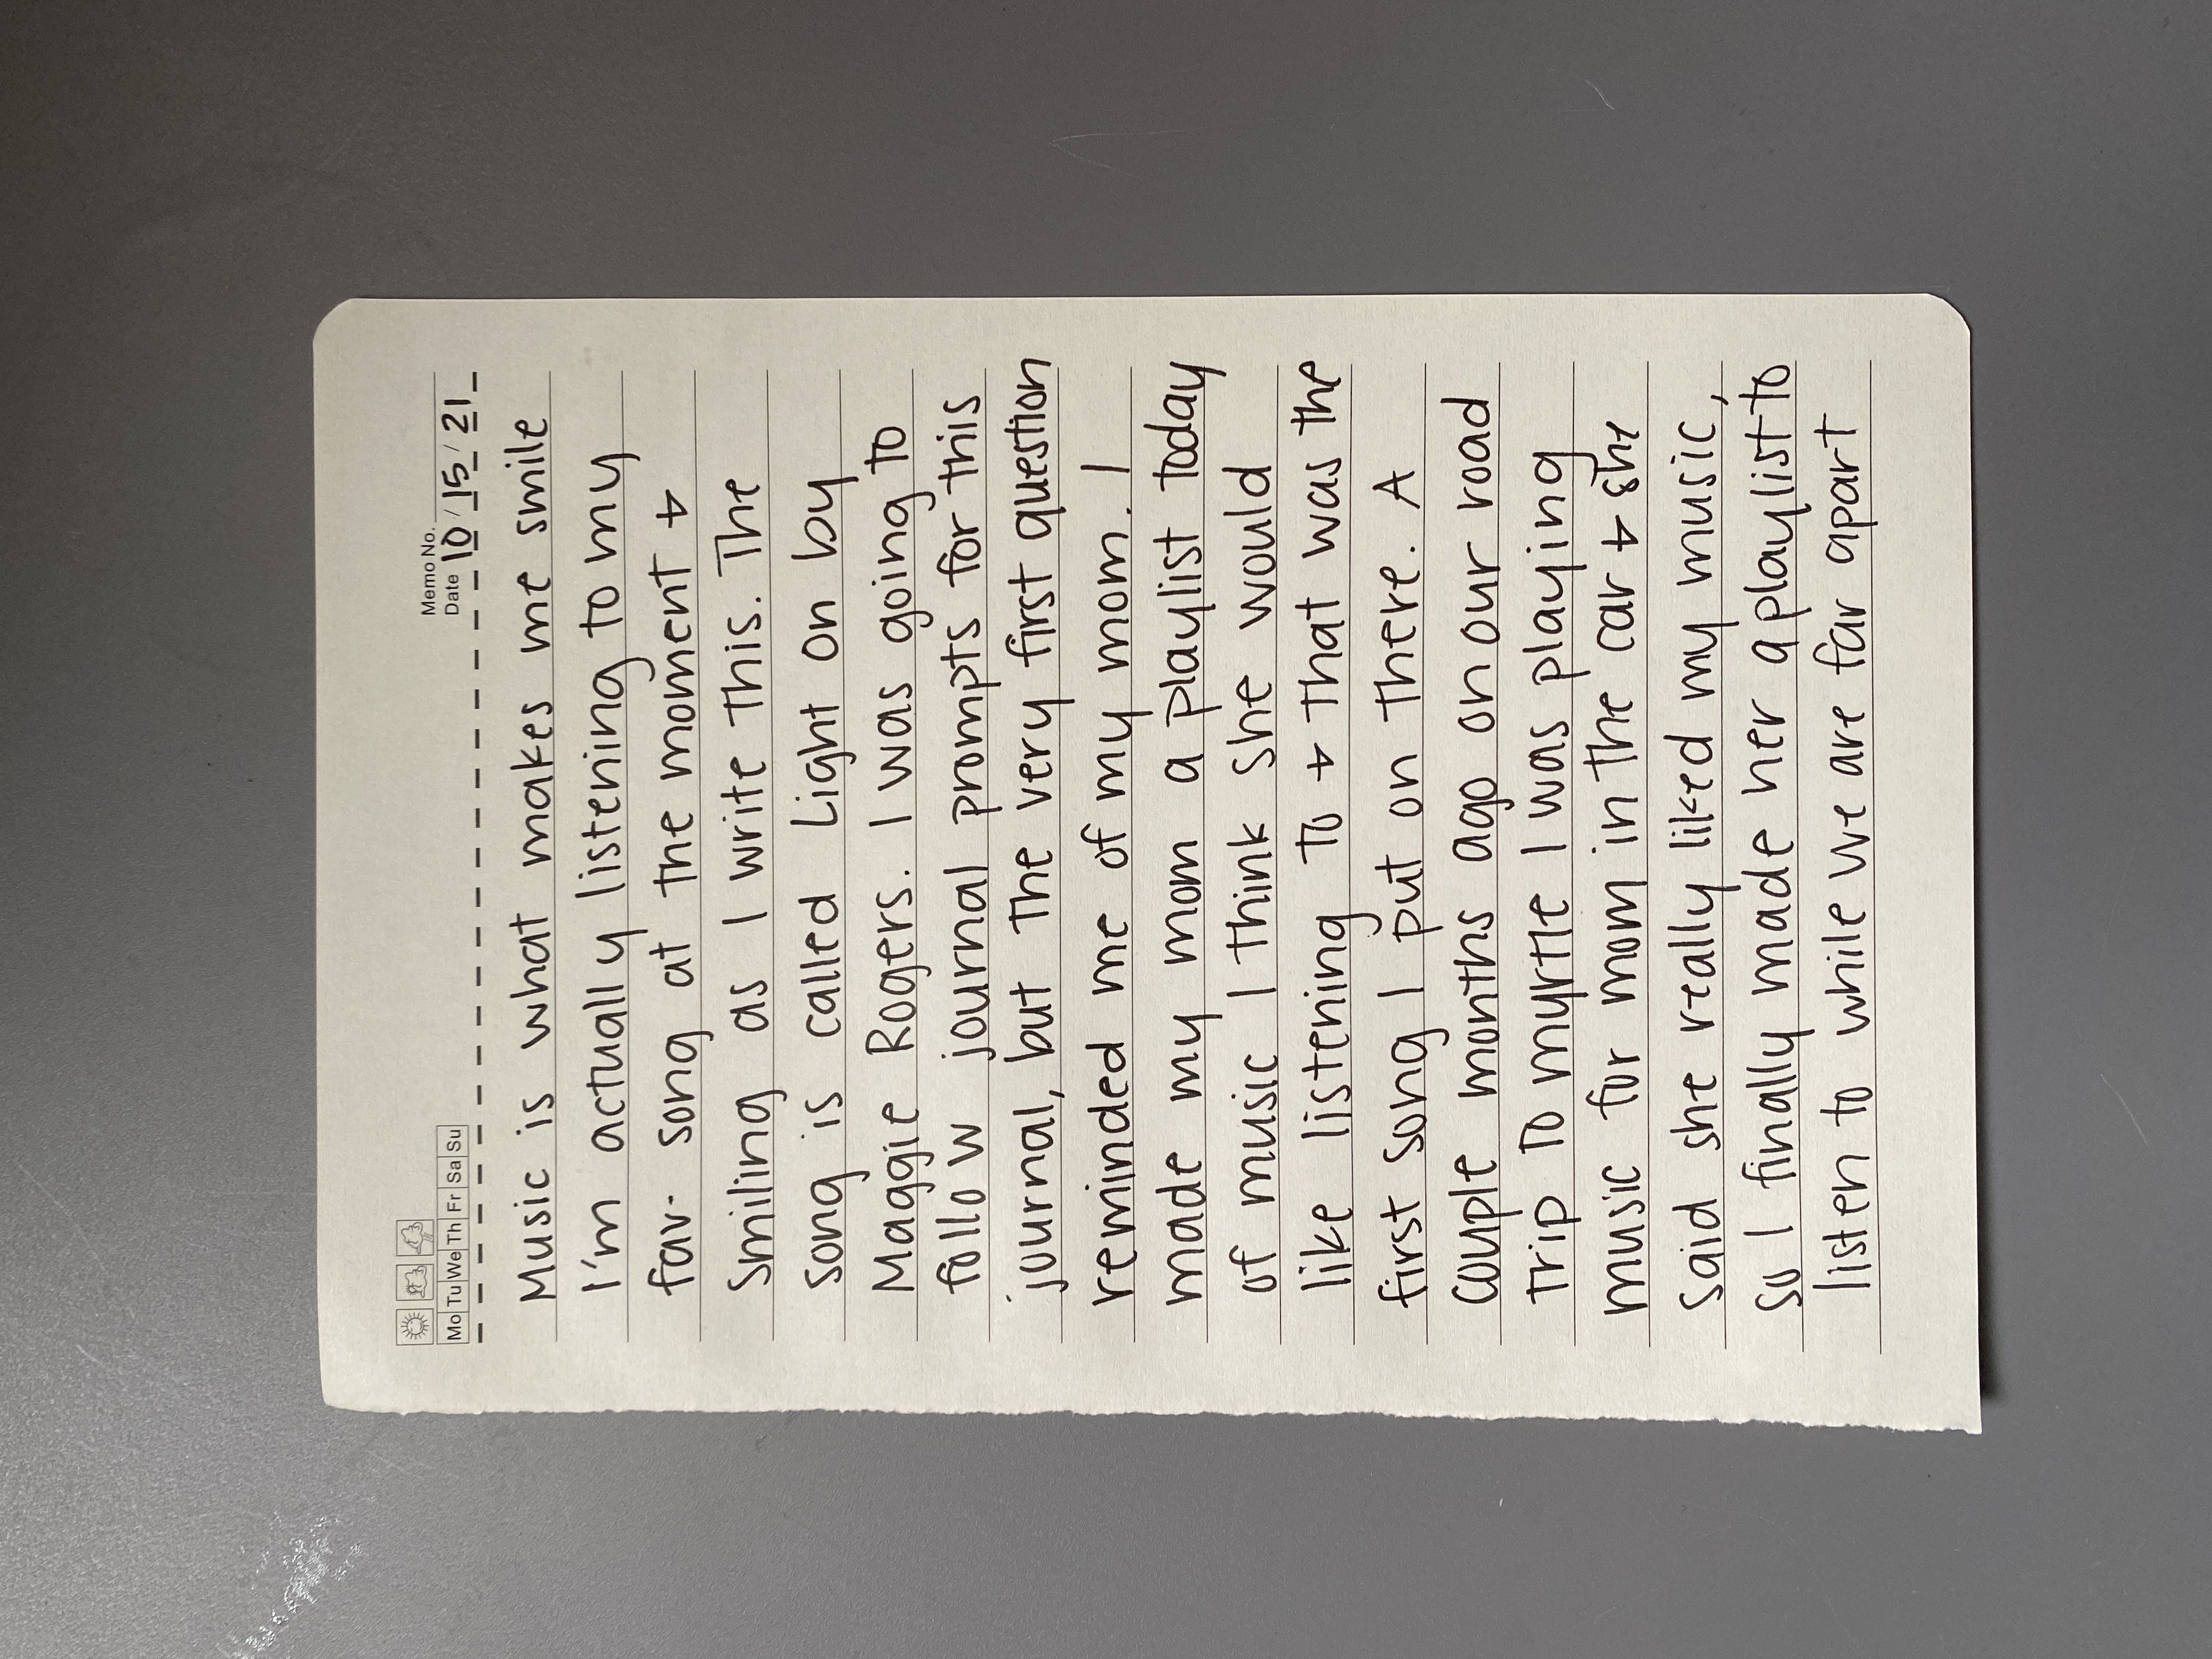 Mo Tu We Th Fr Sa Su
Memo No.
Date 10 / 15 / 21
Music is what makes me smile
I'm actually listening to my
fav. song at the moment +
smiling as I write this. The
song is called Light On by
Maggie Rogers. I was going to
follow journal prompts for this
journal, but the very first question
reminded me of my mom. I
made my mom a playlist today
of music I think she would
like listening to + that was the
first song I put on there. A
couple months ago on our road
trip to myrtle I was playing
music for mom in the car + she
said she really liked my music,
so I finally made her a playlist to
listen to while we are far apart